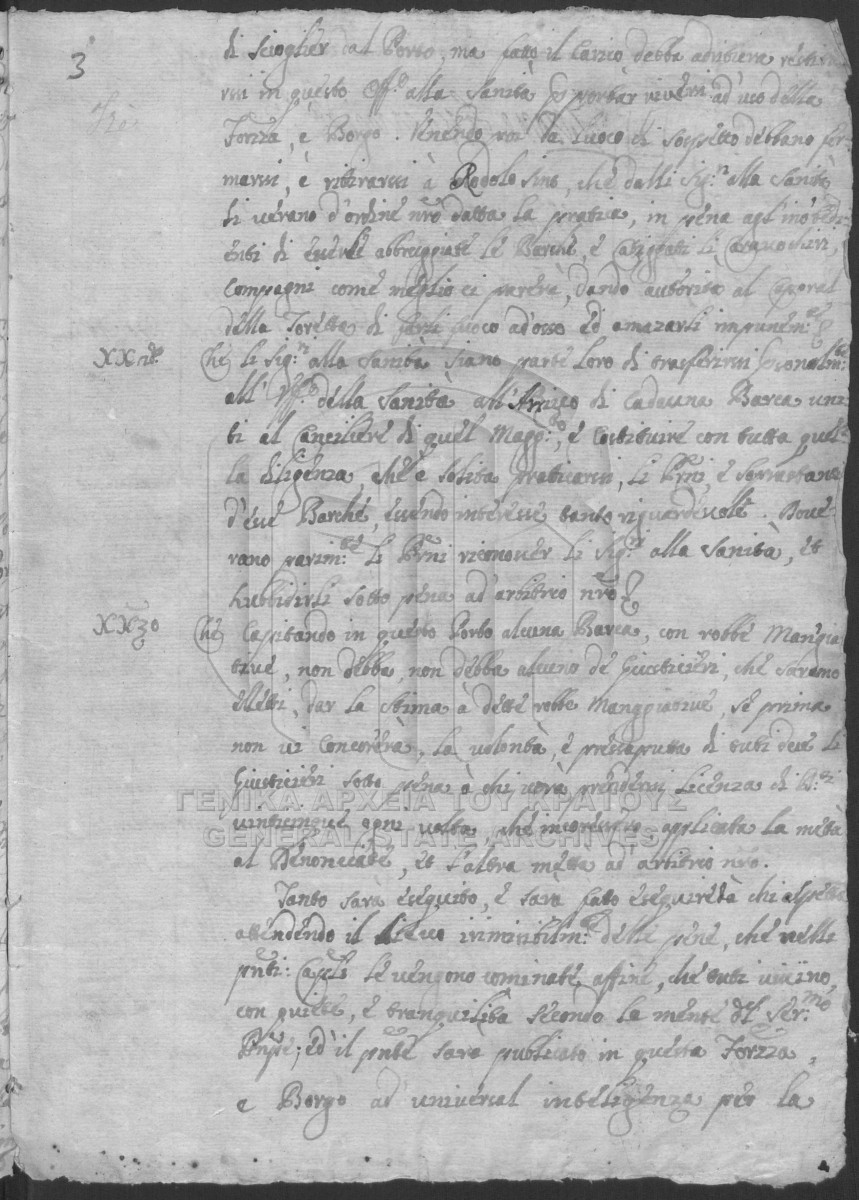 3
di Scioglier dal Porto, ma fatto il Carico debba adrittura
rsi in questo Off.o alla Sanità portar viveri ad uso della
Forzza, e Borgo. Venendo poi da luoco di sospetto debbano fer
marsi, e rittirarsi à Rodolo sino, che dalli Sig.ri alla Sanità
li verano d'ordine nro datta la pratica, in pena agl'inobedi
enti di éuerlé abbrugiaté lé Barché, é Castigati li Caravochiri,
Compagni comé meglio ci parerà, dando autorità al Caporal
della Toretta di farli fuoco ad'osso éd amazarli impunem.te
XXII.do Ché li Sig.ri alla Sanità Siano parte loro di trasferirsi personalm.te
all' Off.o della Sanità all'Arrivo di Cadauna Barca uni
ti al Canciliere di quel Magg.to, é Costituire con tutta quel
la diligenza, ché é solita praticarsi, li Prni, é Soprastanti
d'ésse Barché, éssendo intéressé tanto riguardévollé. Dové
rano parim.té li Prni riconoscer li Sig.ri alla Sanità, ét
hubbidirli sotto pena ad'arbitrio nro
XX3o Ché Capitando in questo Porto alcuna Barca, con robbé Mangia
tive, non débba, non débba alcuno dé Giusticiéri, ché Sarano
élétti, dar la Stima a détté robbe Manggiative, sé prima
non vi Concorérà, la volontà, é di tuti dué li
Giusticiéri sotto pena à chi vorà préndersi Licenza di R.li
vinticinqué ogni volta, ché incoressero applicata la métà
al Dénonciaté, ét l'altra métta ad arbitrio nro.
Tanto sarà éséquito, é sarà fato éséquiré da chi aspetta
atténdendo il irimisibilm.té délli péné, ché nélli
pnti: Capli lé véngono cominaté affiné, ché tuti vivino,
con quiété, é tranquilità sécondo la menté dél Sér.mo
Prnpé; éd il pnté sarà publicato in questa Forzza,
e Borgo ad universal inteligenza per la
ΓΕΝΙΚΑ ΑΡΧΕΙΑ ΤΟΥ ΚΡΑΤΟΥΣ
GENERAL STATE ARCHIVES